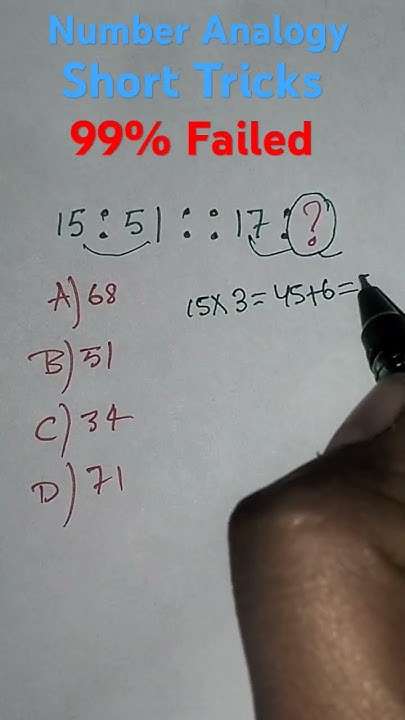 Number Analogy
Short Tricks
99% Failed
15 : 51 : : 17 : ?
A) 68
15 x 3 = 45 + 6 =
B) 51
C) 34
D) 71